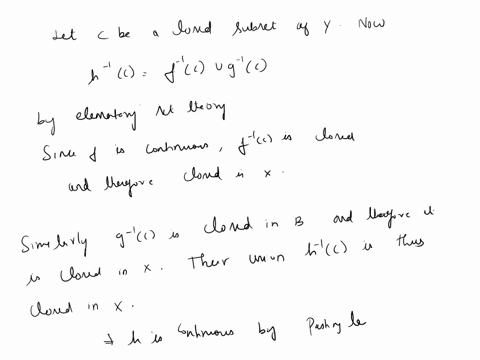 Let C be a closed subset of Y. Now
h⁻¹(C) = f⁻¹(C) ∪ g⁻¹(C)
by elementary set theory
Since f is continuous, f⁻¹(C) is closed
and therefore closed in X.
Similarly g⁻¹(C) is closed in B and therefore it
is closed in X. Their union h⁻¹(C) is thus
closed in X.
⇒ h is continuous by Pasting le